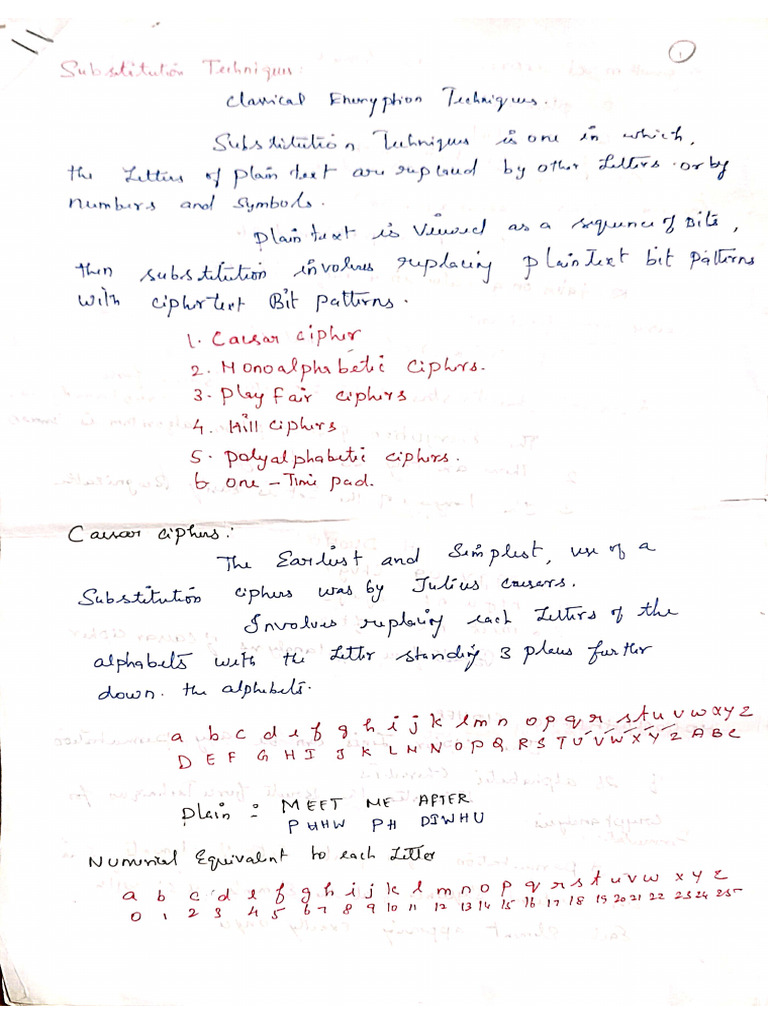 1
Substitution Techniques:
Classical Encryption Techniques.
Substitution Techniques is one in which,
the Letters of plain text are replaced by other Letters or by
Numbers and Symbols.
Plain text is Viewed as a sequence of Bits,
then substitution involves replacing plaintext bit patterns
with ciphertext Bit patterns.
1. Caesar cipher
2. Monoalphabetic ciphers.
3. Play fair ciphers
4. Hill ciphers
5. polyalphabetic ciphers.
6 one - Time pad.
Caesar ciphers:
The Earliest and Simplest, use of a
Substitution ciphers was by Julius caesars.
Involves replacing each Letters of the
alphabets with the Letter standing 3 places further
down. the alphabets.
a b c d e f g h i j k l m n o p q r s t u v w x y z
D E F G H I J K L M N O P Q R S T U V W X Y Z A B C
Plain : MEET ME AFTER
PHHW PH DIWHU
Numerical Equivalent to each Letter
a b c d e f g h i j k l m n o p q r s t u v w x y z
0 1 2 3 4 5 6 7 8 9 10 11 12 13 14 15 16 17 18 19 20 21 22 23 24 25